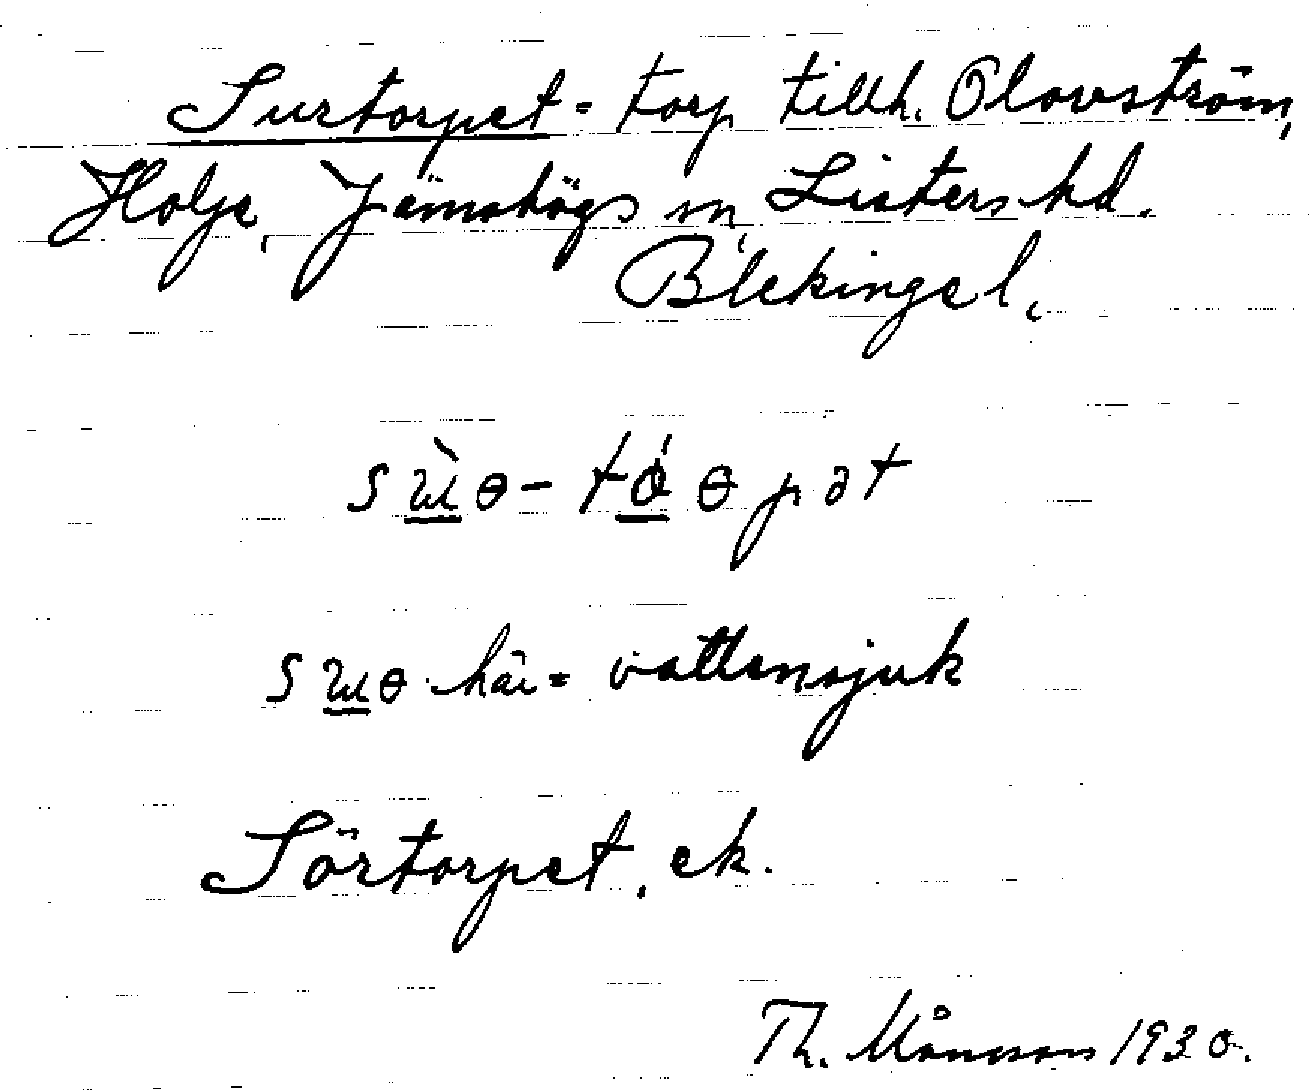 Surtorpet - torp tillh. Olovström,
Holje, Jämshögs sn, Listers hd.
Blekinge l.
sɯ̀ɵ-tɵ́ɵpət
sɯɵ här = vattensjuk
Sörtorpet, ek.
Th. Månsson 1930.